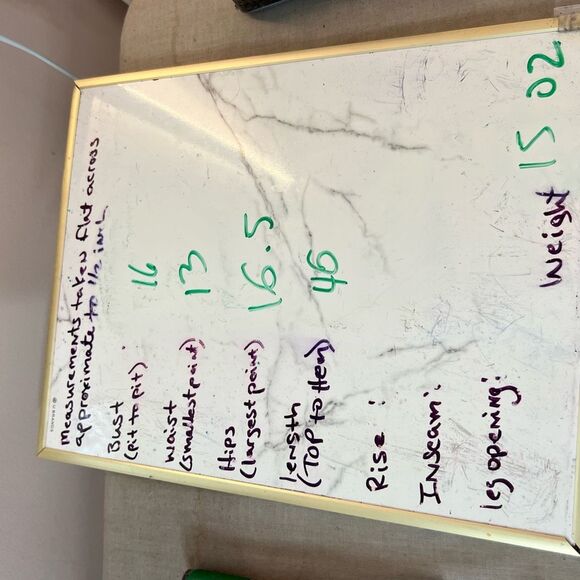 measurements taken flat across
approximate to 1/2 inch
Bust 16
(pit to pit)
Waist 13
(smallest point)
Hips 16.5
(largest point)
Length 46
(Top to Hem)
Rise:
Inseam:
leg opening:
Weight 15 oz
U BRANDS